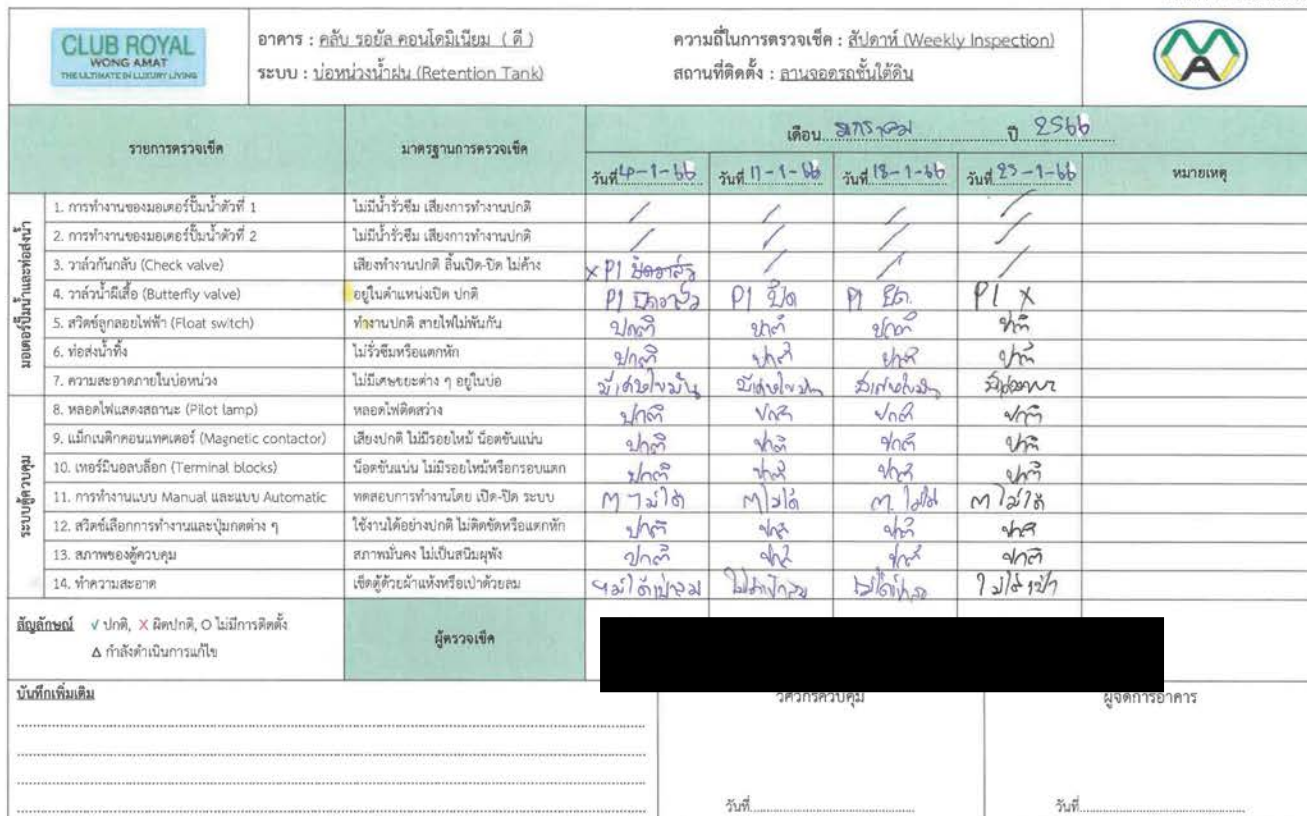 CLUB ROYAL
WONG AMAT
THE ULTIMATE IN LUXURY LIVING
อาคาร : คลับ รอยัล คอนโดมิเนียม ( ดี )
ระบบ : บ่อหน่วงน้ำฝน (Retention Tank)
ความถี่ในการตรวจเช็ค : สัปดาห์ (Weekly Inspection)
สถานที่ติดตั้ง : ลานจอดรถชั้นใต้ดิน
รายการตรวจเช็ค มาตรฐานการตรวจเช็ค เดือน มกราคม ปี 2566 หมายเหตุ
วันที่ 4-1-66 วันที่ 11-1-66 วันที่ 18-1-66 วันที่ 25-1-66
มอเตอร์ปั๊มน้ำและท่อส่งน้ำ
1. การทำงานของมอเตอร์ปั๊มน้ำตัวที่ 1 ไม่มีน้ำรั่วซึม เสียงการทำงานปกติ / / / /
2. การทำงานของมอเตอร์ปั๊มน้ำตัวที่ 2 ไม่มีน้ำรั่วซึม เสียงการทำงานปกติ / / / /
3. วาล์วกันกลับ (Check valve) เสียงทำงานปกติ ลิ้นเปิด-ปิด ไม่ค้าง x P1 ปิดวาล์ว / / /
4. วาล์วน้ำผีเสื้อ (Butterfly valve) อยู่ในตำแหน่งเปิด ปกติ P1 ปิดวาล์ว P1 ปิด P1 ปิด. P1 X
5. สวิตช์ลูกลอยไฟฟ้า (Float switch) ทำงานปกติ สายไฟไม่พันกัน ปกติ ปกติ ปกติ ปกติ
6. ท่อส่งน้ำทิ้ง ไม่รั่วซึมหรือแตกหัก ปกติ ปกติ ปกติ ปกติ
7. ความสะอาดภายในบ่อหน่วง ไม่มีเศษขยะต่าง ๆ อยู่ในบ่อ มีเศษไขมัน มีเศษไขมัน มีเศษไขมัน
ระบบตู้ควบคุม
8. หลอดไฟแสดงสถานะ (Pilot lamp) หลอดไฟติดสว่าง ปกติ ปกติ ปกติ ปกติ
9. แม็กเนติกคอนแทคเตอร์ (Magnetic contactor) เสียงปกติ ไม่มีรอยไหม้ น็อตขันแน่น ปกติ ปกติ ปกติ ปกติ
10. เทอร์มินอลบล็อก (Terminal blocks) น็อตขันแน่น ไม่มีรอยไหม้หรือกรอบแตก ปกติ ปกติ ปกติ ปกติ
11. การทำงานแบบ Manual และแบบ Automatic ทดสอบการทำงานโดย เปิด-ปิด ระบบ M ไม่ได้ M ไม่ได้ M. ไม่ได้ M ไม่ได้
12. สวิตช์เลือกการทำงานและปุ่มกดต่าง ๆ ใช้งานได้อย่างปกติ ไม่ติดขัดหรือแตกหัก ปกติ ปกติ ปกติ ปกติ
13. สภาพของตู้ควบคุม สภาพมั่นคง ไม่เป็นสนิมผุพัง ปกติ ปกติ ปกติ ปกติ
14. ทำความสะอาด เช็ดตู้ด้วยผ้าแห้งหรือเป่าด้วยลม ไม่ได้เป่าลม ไม่ได้เป่าลม ไม่ได้เป่าลม ไม่ได้เป่า
สัญลักษณ์ √ ปกติ, X ผิดปกติ, O ไม่มีการติดตั้ง
Δ กำลังดำเนินการแก้ไข
ผู้ตรวจเช็ค
บันทึกเพิ่มเติม
วิศวกรควบคุม
ผู้จัดการอาคาร
วันที่
วันที่